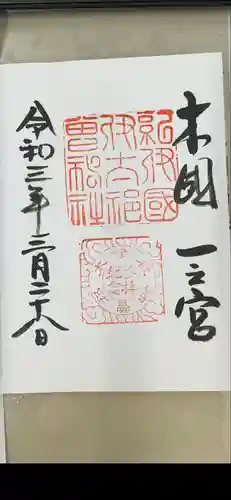 木国 一之宮
紀伊國
伊太祁
曽神社
令和三年三月二十八日